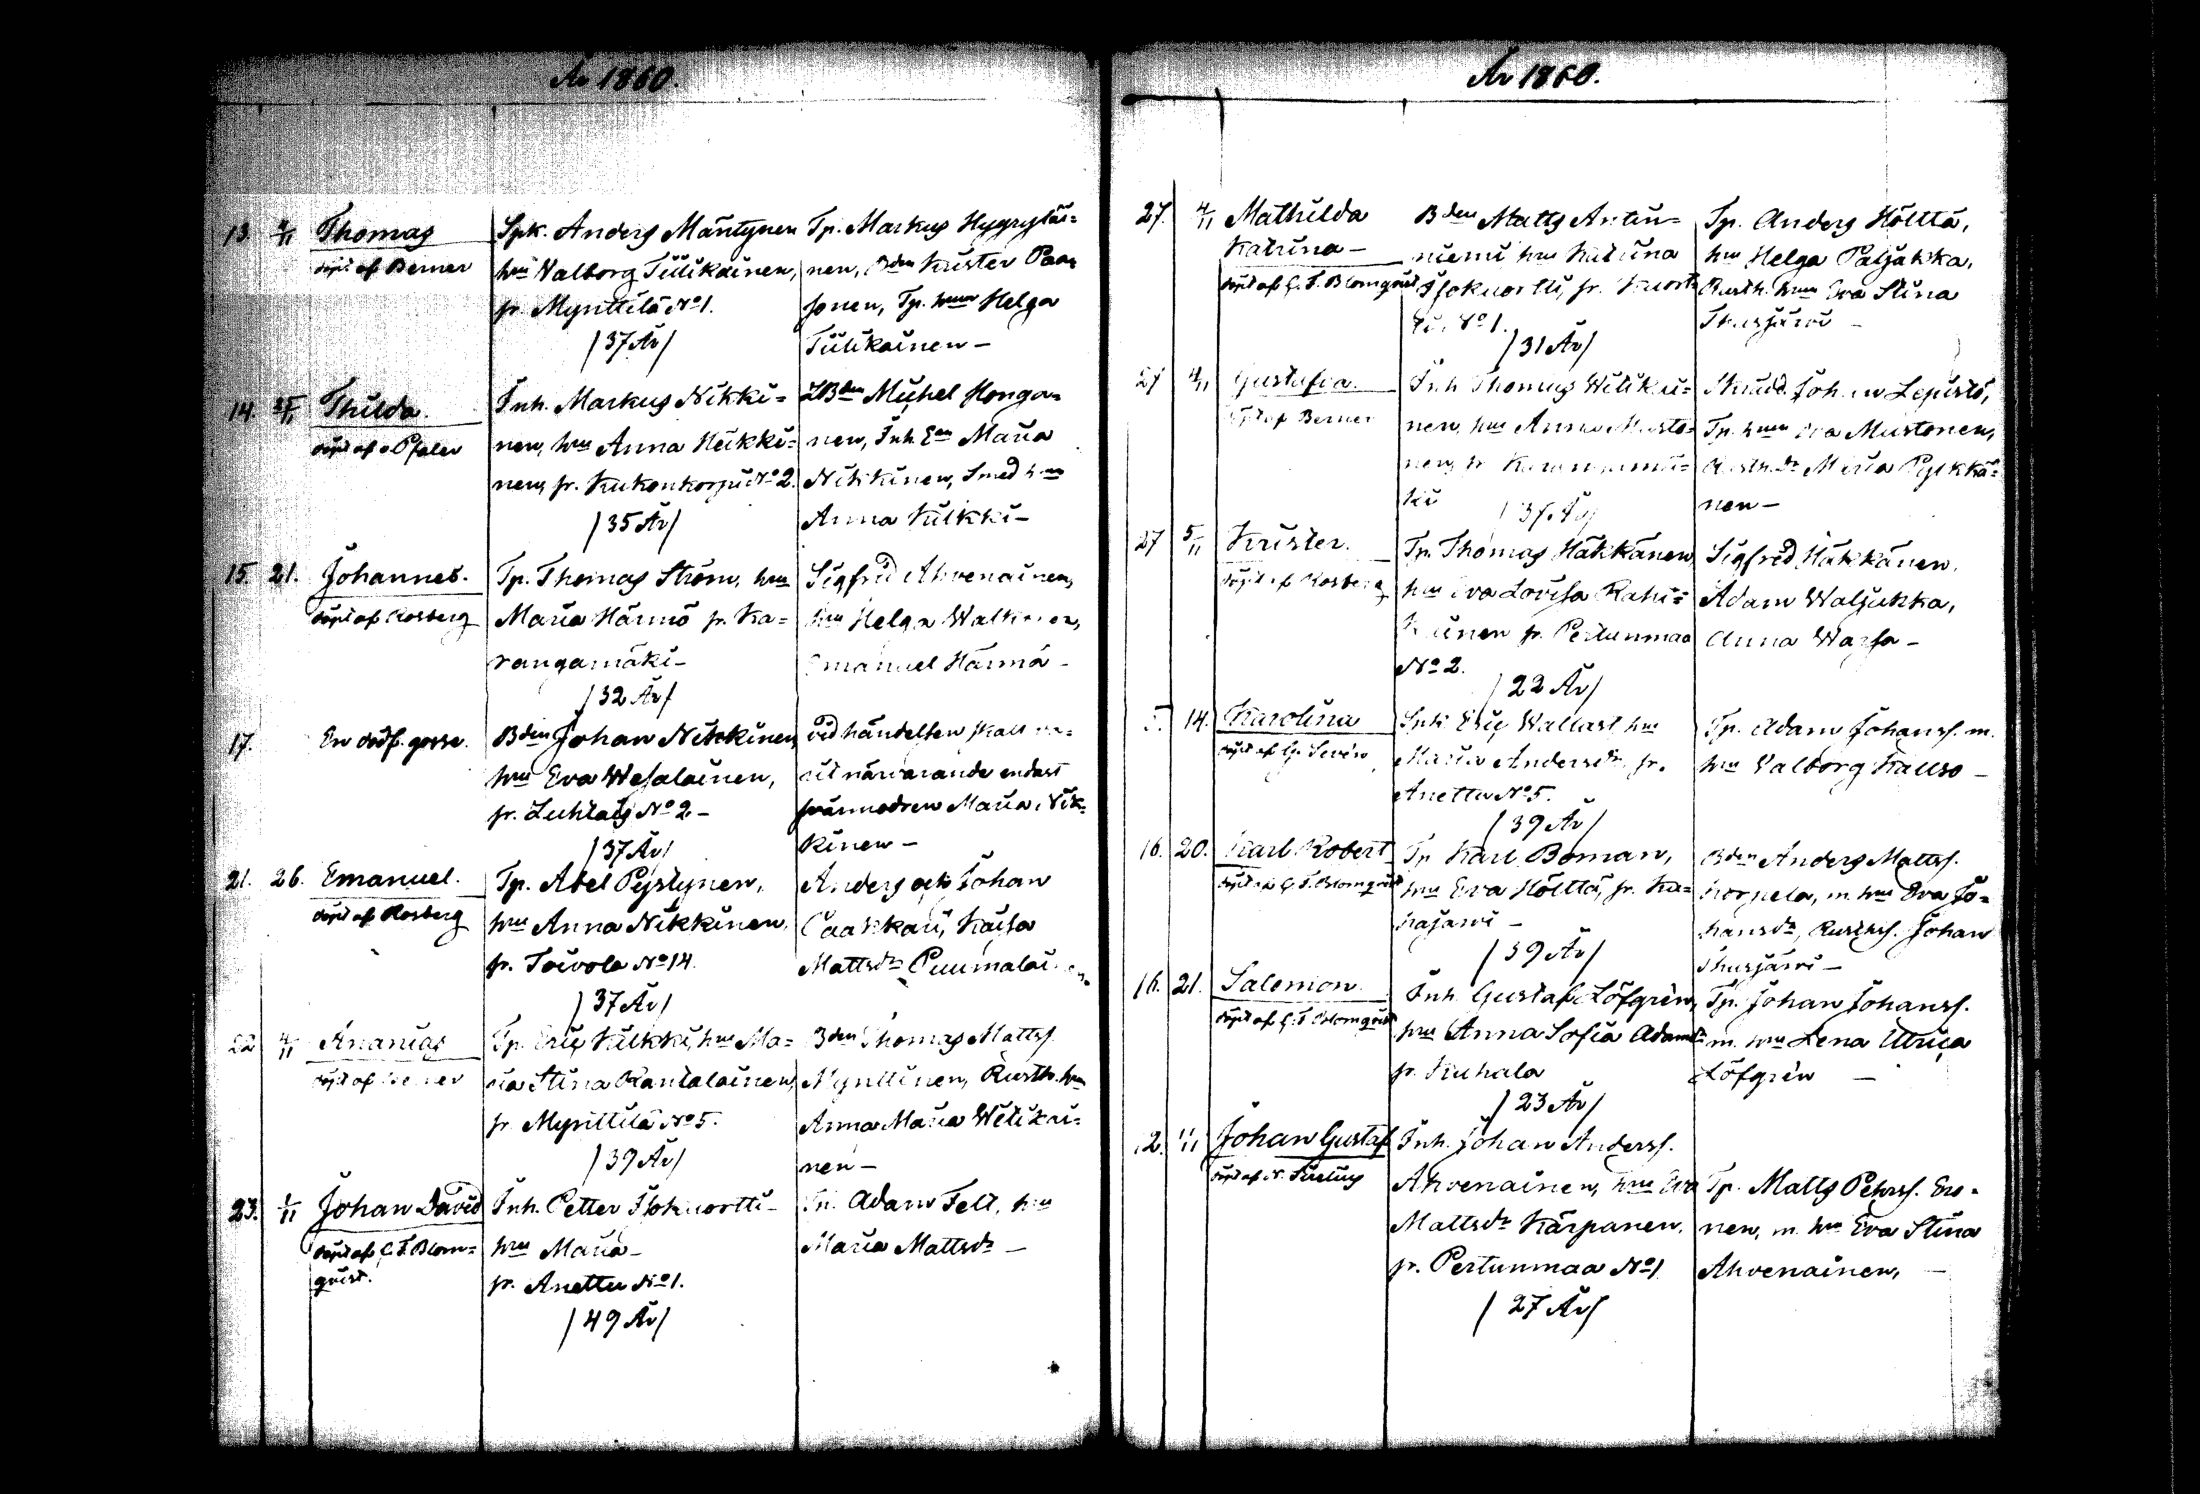 År 1860.
13. 2/11 Thomas
döpt af Berner
Spk. Anders Mäntynen
hu Walborg Tiilikainen,
fr. Mynttilä No 1.
/37 År/
Tp. Markus Hygryläi=
nen, Bden Krister Paa=
sonen, Tp. hun Helga
Tiilikainen –
14. Thilda.
döpt af Pfaler
Inh. Markus Nikki=
nen, hu Anna Heikki=
nen, fr. Kukonkorpi No 2.
/35 År/
Bden Michel Honga=
nen, Inh. Maria
Nikkinen, Smed hu
Anna Kilkki –
15. 21. Johannes.
döpt af Rosberg
Tp. Thomas Ström, hu
Maria Härmö fr. Ka=
rangamäki –
/32 År/
Sigfrid Ahvenainen,
hu Helga
Emanuel Härmä –
17. En dödf. gosse.
Bden Johan Nikkinen
hu Eva Wesalainen,
fr. No 2 –
/37 År/
vid händelsen skall va=
rit närvarande endast
svärmodren Maria Nik=
kinen –
21. 26. Emanuel.
döpt af Rosberg
Tp. Abel Pöystynen,
hu Anna Nikkinen,
fr. Toivola No 14.
/37 År/
Anders och Johan
Kaisa
Mattsdr Puumalai
22. 4/11 Ananias
döpt af Berner
Tp. Eric Kilkki, hu Ma=
ria Stina Rantalainen,
fr. Mynttilä No 5.
/39 År/
Bden Thomas Mattss.
Mynttinen, Rusth. hu
Anna Maria Wilikai=
nen –
23. 1/11 Johan David
döpt af C. F. Blom=
qvist.
Inh. Petter Isokuortti –
hu Maria –
fr. Anettu No 1.
/49 År/
Adam Felt, hu
Maria Mattsdr –
År 1860.
27. 4/11 Mathilda
Katrina –
döpt af C. F. Blomqvist
Bden Matts Antti=
niemi hu Katrina
Isokuortti, fr. Kuort
No 1.
/31 År/
Tp. Anders Hölttä,
hu Helga Paljakka,
Rusth. hun Eva Stina
27 4/11 Gustafva.
döpt af Berner
Inh. Thomas Wilikai=
nen, hu Anna Musto=
nen, fr.
ki
/37 År/
Johan Lepistö,
Tp. hun Eva Mustonen,
Maria Pylkkä=
nen –
27 5/11 Krister.
döpt af Rosberg
Tp. Thomas Häkkänen
hu Eva Lovisa
fr. Pertunmaa
No 2.
/22 År/
Sigfrid Häkkänen,
Adam Waljakka,
Anna Warsa –
14. Karolina
döpt af G. Sevén
Spk. Eric Wallast hu
Maria Andersdr fr.
Anettu No 5.
/39 År/
Tp. Adam Johanss. m.
hu Walborg Kallso –
16. 20. Karl Robert
döpt af C. F. Blomqvist
Tp. Karl Boman,
hu Eva Hölttä, fr.
/39 År/
Bden Anders Mattss.
Korpela, m. hu Eva Jo=
hansdr, Rusths. Johan
16. 21. Salemon.
döpt af C. F. Blomqvist
Inh. Gustaf Löfgrén,
hu Anna Sofia Adamsdr
fr. Kuhala
/23 År/
Tp. Johan Johanss.
m. hu Lena Ulrica
Löfgrén –
12. 1/11 Johan Gustaf
döpt af
Inh. Johan Anderss.
Ahvenainen, hu Eva
Mattsdr Kärpänen,
fr. Pertunmaa No 1
/27 År/
Tp. Matts Pehrss. Ero=
nen, m. hu Eva Stina
Ahvenainen, –